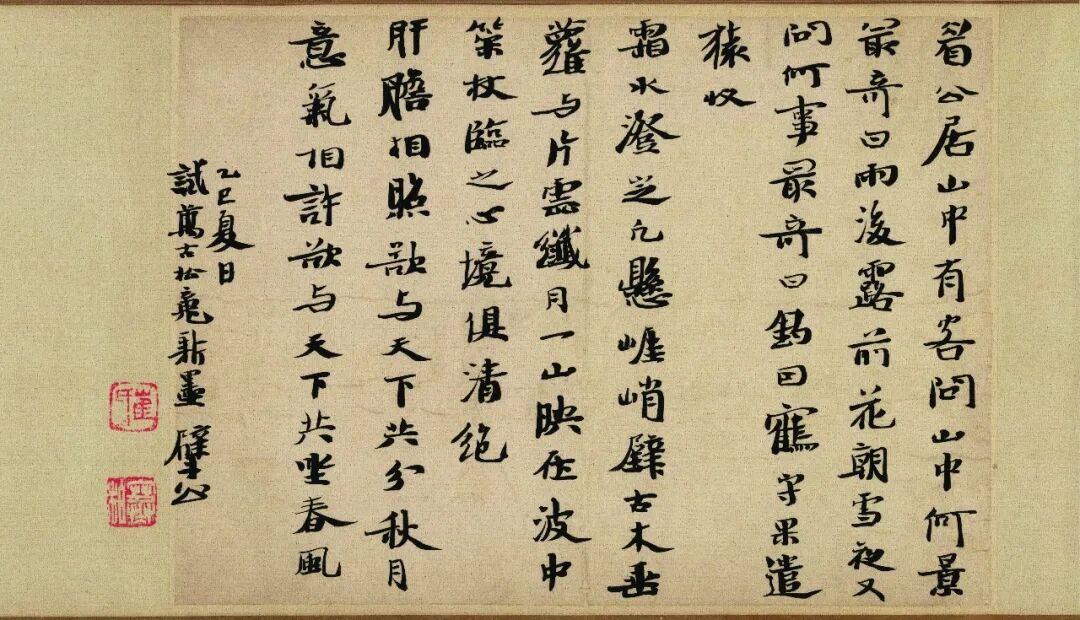 眉公居山中有客問山中何景
最奇曰雨後露前花朝雪夜又
問何事最奇曰釣因鶴守果遣
猿收
霜水澄定凡懸崖峭壁古木垂
蘿与片雲纖月一山映在波中
策杖臨之心境俱清絕
肝膽相照欲与天下共分秋月
意氣相許欲与天下共坐春風
乙巳夏日
試萬古松新墨 擘公